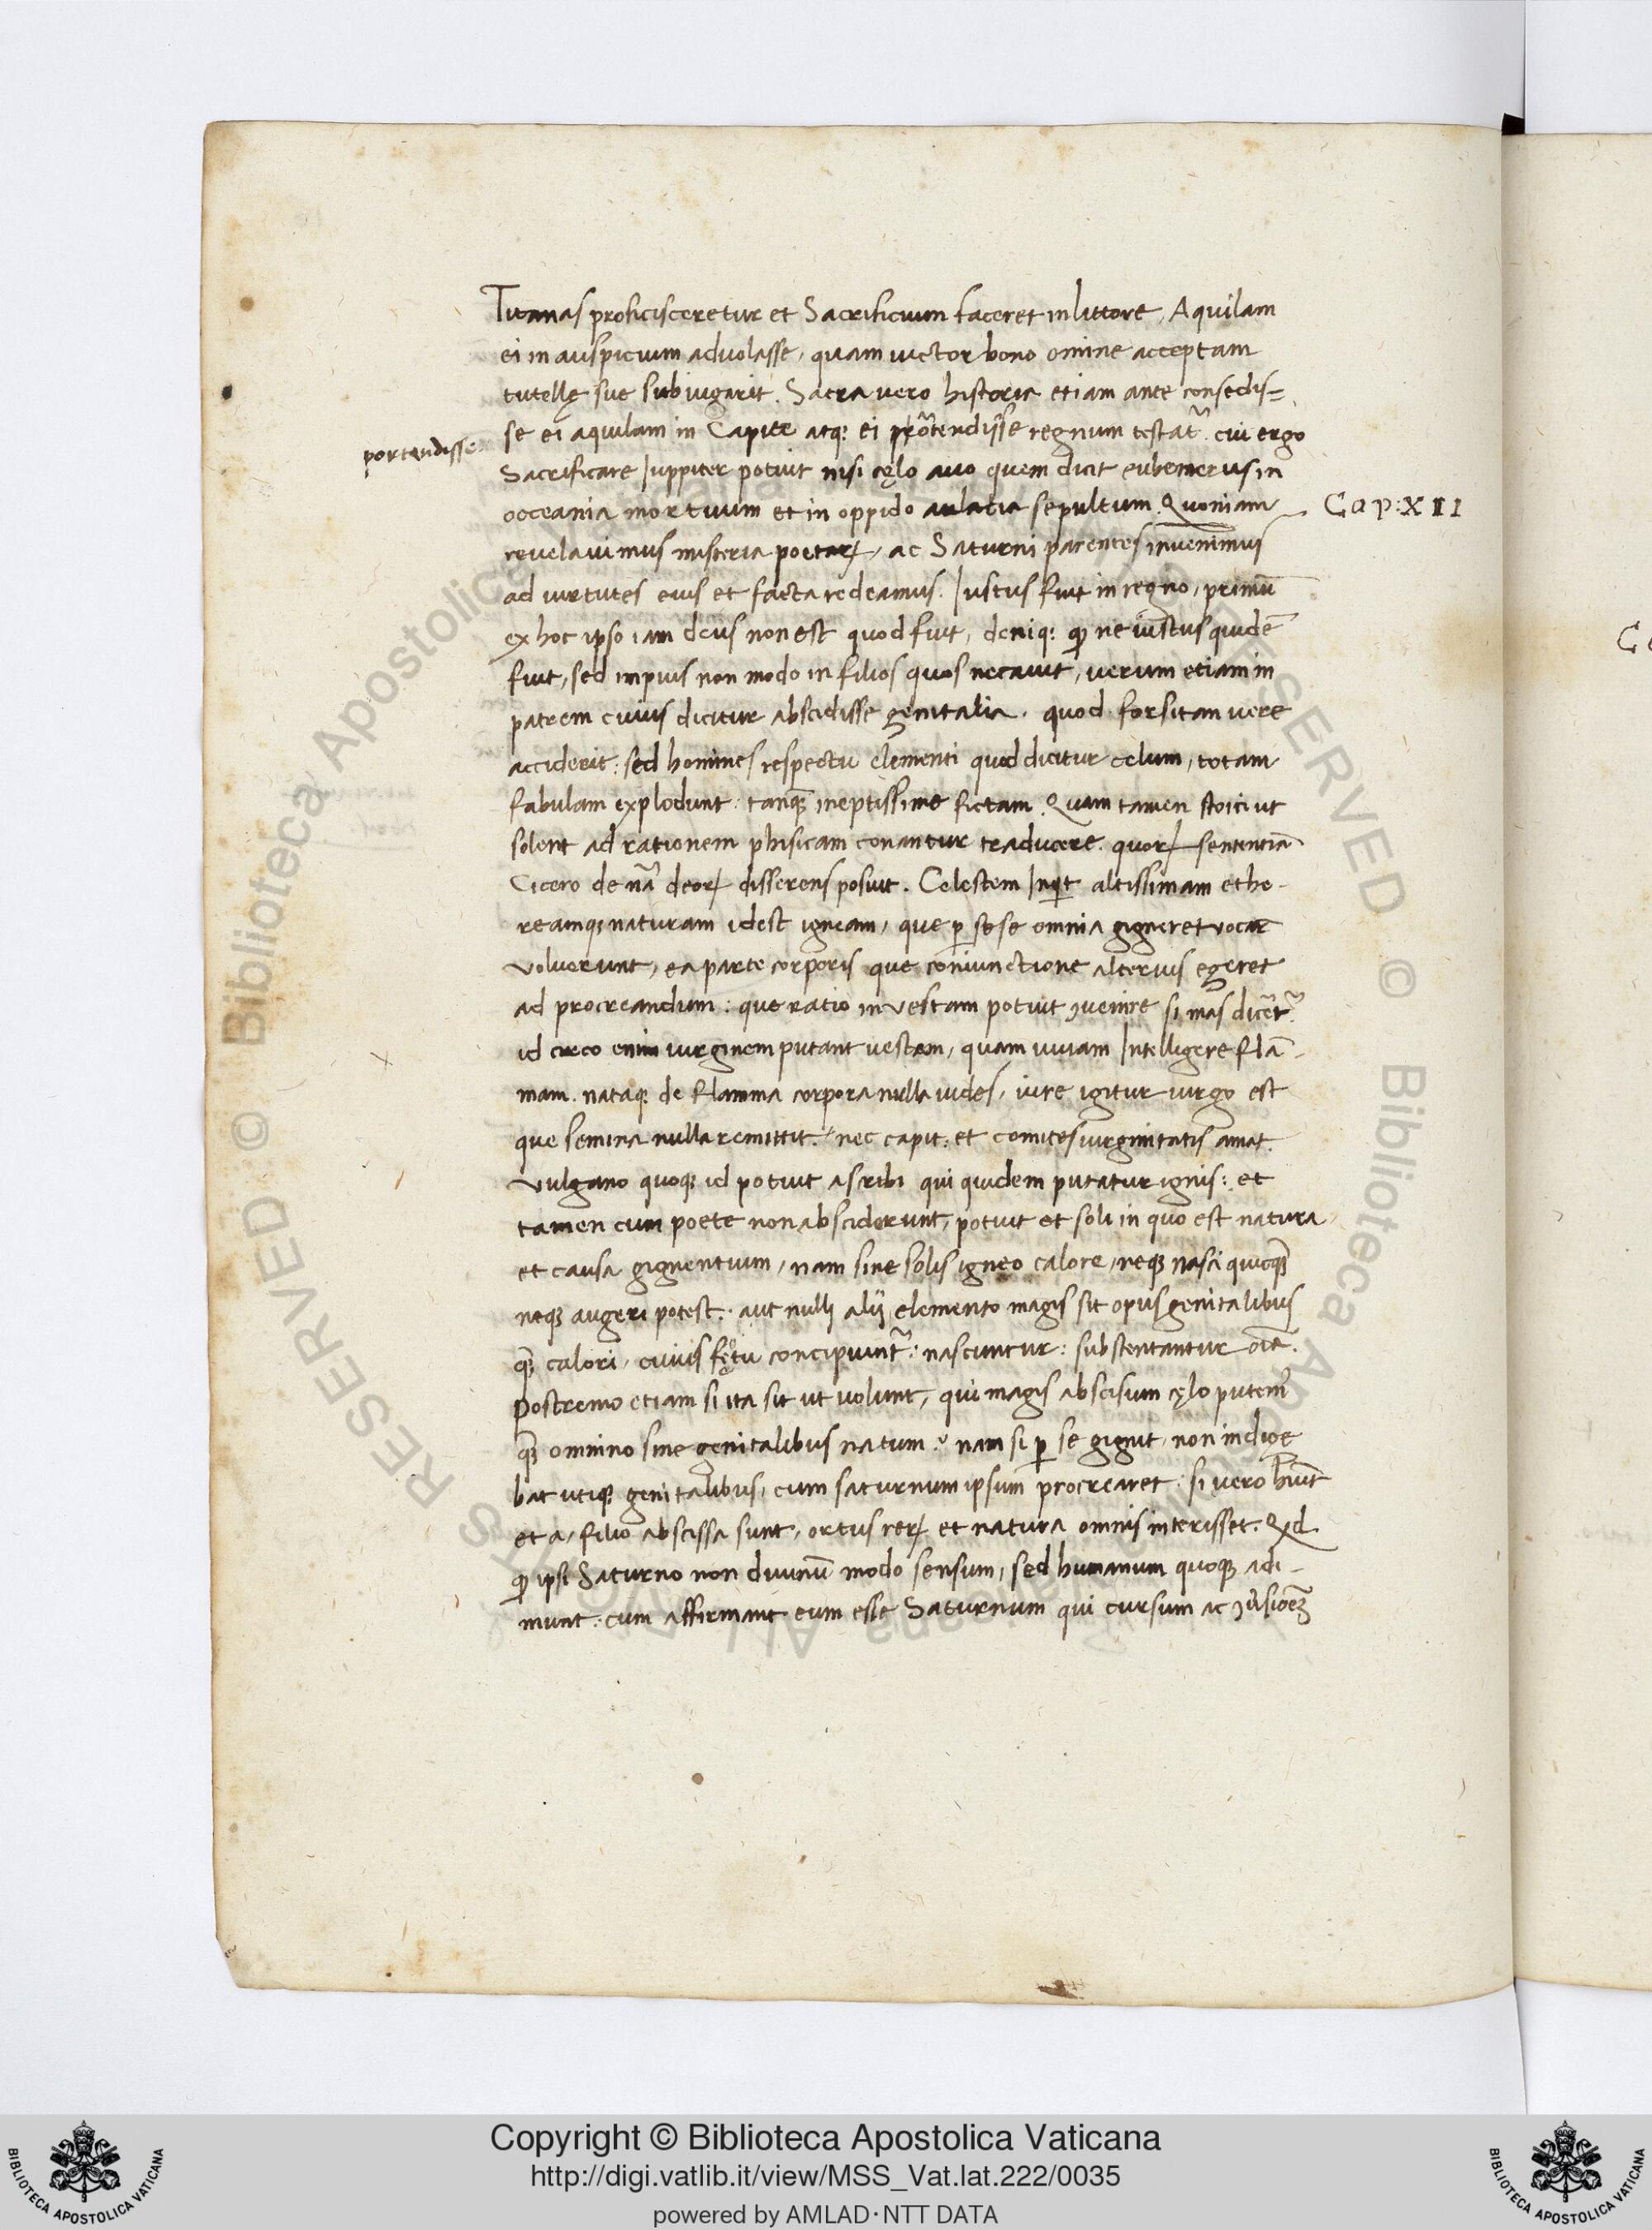 Titanas proficisceretur et Sacrificium faceret in littore, Aquilam
ei in auspicium advolasse, quam victor bono omine acceptam
tutellę sue subiugarit. Sacra vero historia etiam ante consedis=
se ei aquilam in Capite atq; ei protendisse regnum testat᷑. cui ergo
portendisse
Sacrificare Iuppiter potuit nisi cęlo avo quem dicit eubemerus in
occeania mortuum et in oppido aulatia sepultum. Quoniam
Cap: XII
revelavimus misteria poetaꝝ, ac Saturni parentes invenimus
ad virtutes eius et facta redeamus. Iustus fuit in regno, primū
ex hoc ipso iam deus non est quod fuit, deniq; ꝙ ne iustus quidē
fuit, sed impius non modo in filios quos necavit, verum etiam in
patrem cuius dicitur abscidisse genitalia. quod forsitan vere
acciderit: sed homines respectu elementi quod dicitur celum, totam
fabulam explodunt: tanq̃ ineptissime fictam. Quam tamen stoici ut
solent ad rationem phisicam conantur traducere. quoꝝ sententiā
Cicero de nā deoꝝ disserens posuit. Celestem Inqit altissimam ethe-
reamq; naturam idest igneam, que ꝑ sese omnia gigneret vocar̄
voluerunt, ea parte corporis que coniunctione alterius egeret
ad procreandum: que ratio in vestam potuit ꝯvenire si mas dicēt᷑.
id circo enim virginem putant vestam, quam vivam Intelligere flā-
mam. nataq; de flamma corpora nulla vides, iure igitur virgo est
que semina nulla remittit. nec capit: et comites virginitatis amat.
vulgano quoq; id potuit ascribi qui quidem putatur ignis: et
tamen cum poete non absciderunt, potuit et soli in quo est natura
et causa gignentium, nam sine solis igneo calore, neq; nasci quicq̃
neq; augeri potest. aut nulli alii elemento magis sit opus genitalibus
q̃ calori, cuius fętu concipiunt᷑: nascuntur: substentantur oīa.
Postremo etiam si ita sit ut volunt, qui magis abscisum cęlo putem᷑
q̃ omnino sine genitalibus natum? nam si ꝑ se gignit, non indige
bat utiq; genitalibus, cum saturnum ipsum procrearet: si vero hūit
et a, filio abscissa sunt, ortus reꝝ et natura omnis interisset. Qd
ꝙ ipsi Saturno non divinū modo sensum, sed humanum quoq; adi-
munt: cum affirmant eum esse Saturnum qui cursum ac ꝯv̄sionē
Copyright © Biblioteca Apostolica Vaticana
http://digi.vatlib.it/view/MSS_Vat.lat.222/0035
powered by AMLAD·NTT DATA